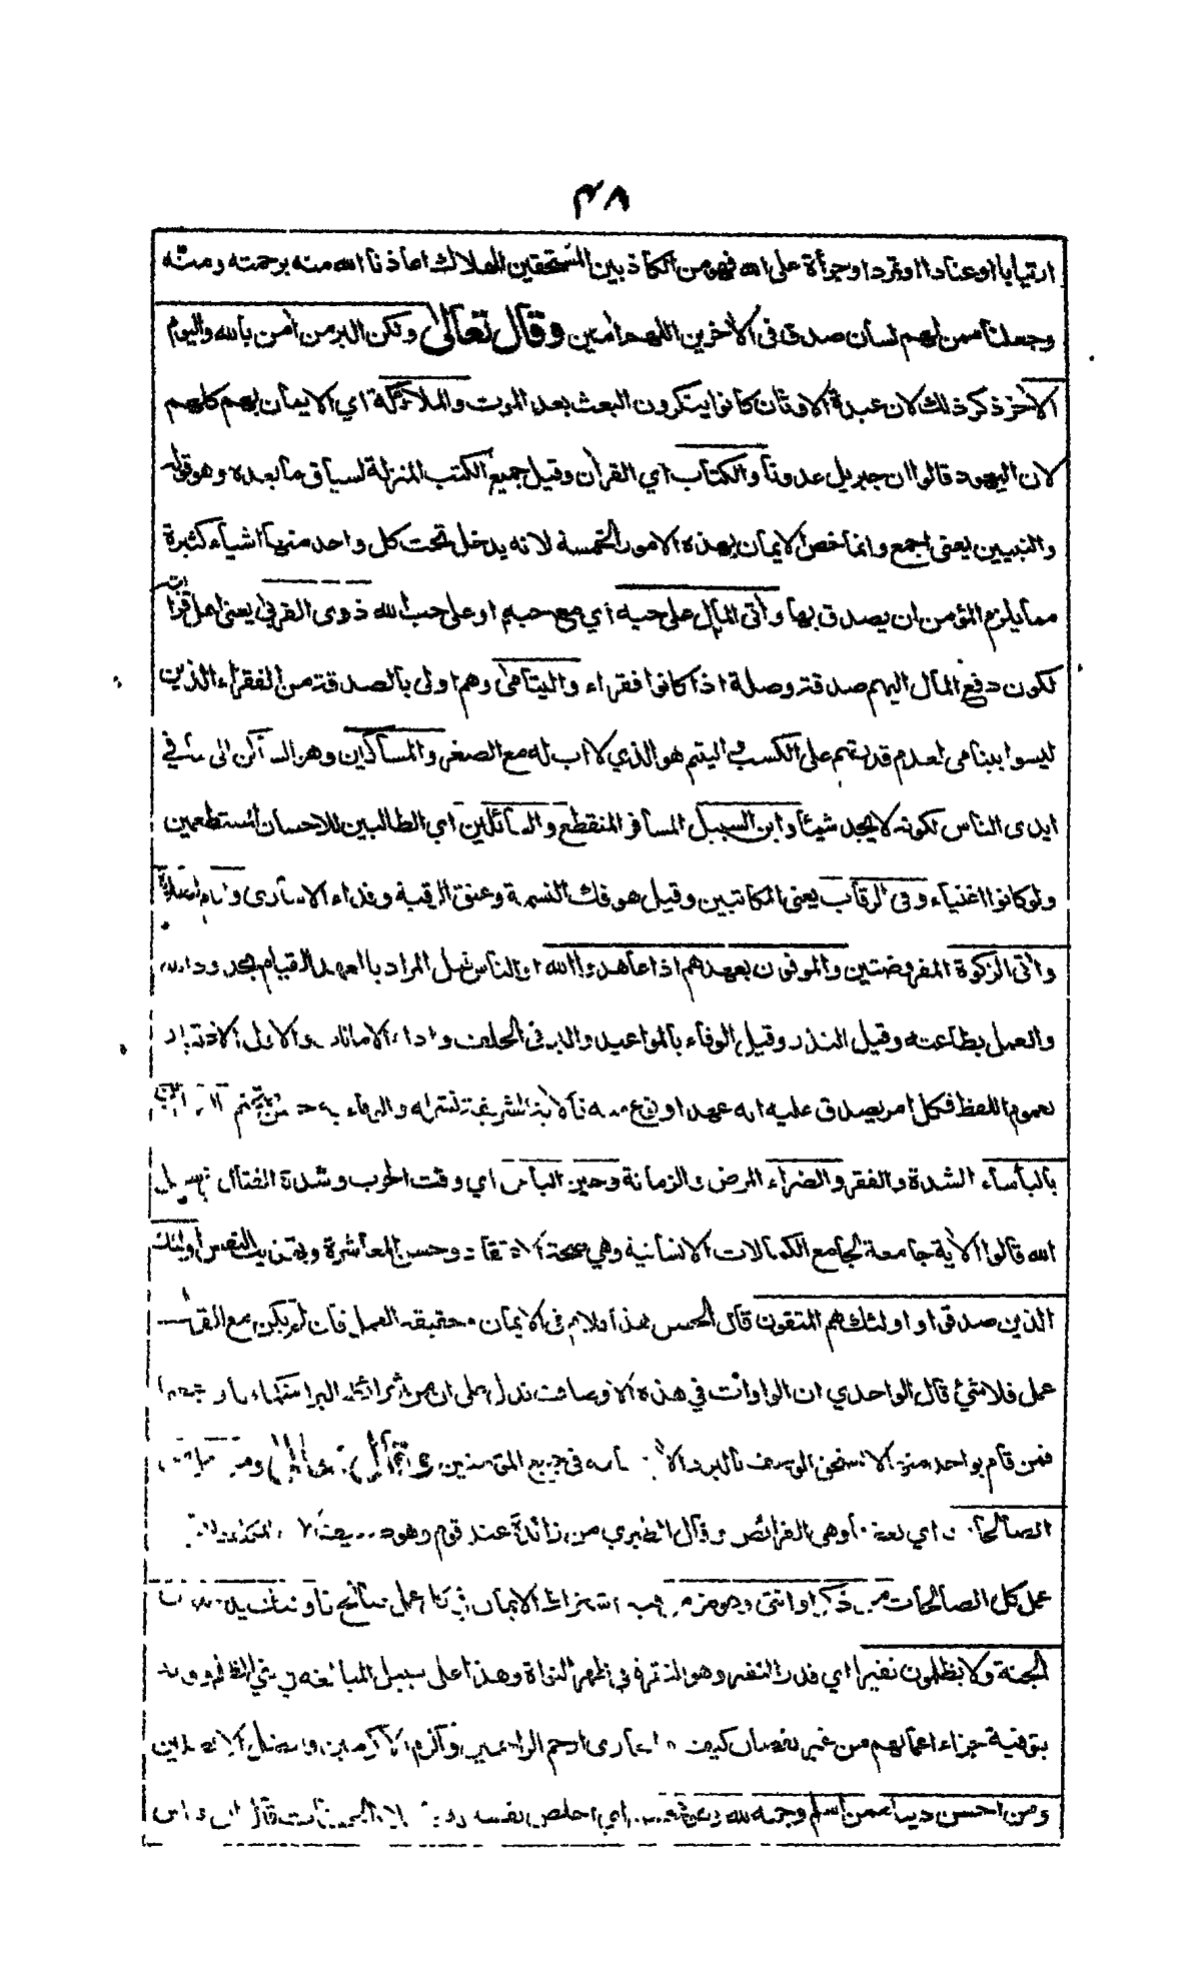 ٣٨
ارتيابا او عنادا او تمردا وجرأة على الله فهو من الكاذبين المستحقين للهلاك اعاذنا الله منه برحمته ومنّه
وجعلنا ممن لهم لسان صدق فى الآخرين اللهم امين وقال تعالى ولكن البر من امن بالله واليوم
الآخر ذكر ذلك لان عبدة الاوثان كانوا ينكرون البعث بعد الموت والملائكة اي الايمان بهم كلهم
لان اليهود قالوا ان جبريل عدونا والكتاب اي القرآن وقيل جميع الكتب المنزلة لسياق ما بعده وهو قوله
والنبيين يعنى اجمع وانما خص الايمان بهذه الامور الخمسة لانه يدخل تحت كل واحد منها اشياء كثيرة
مما يلزم المؤمن ان يصدق بها واتى المال على حبه اي مع حبهم او على حب الله ذوى القربى يعنى اهل قرابة
لكون دفع المال اليهم صدقة وصلة اذا كانوا فقراء واليتامى وهم اولى بالصدقة من الفقراء الذين
ليسوا بيتامى لعدم قدرتهم على الكسب واليتيم هو الذي لا اب له مع الصغر والمساكين وهو الساكن الى ما في
ايدى الناس لكونه لا يجد شيئا وابن السبيل المسافر المنقطع والسائلين اي الطالبين للاحسان المستطعمين
ولو كانوا اغنياء وفى الرقاب يعنى المكاتبين وقيل هو فك النسمة وعتق الرقبة وفداء الاسارى واقام الصلاة
واتى الزكوة المفروضتين والموفون بعهدهم اذا عاهدوا الله او الناس قيل المراد بالعهد القيام بحدود الله
والعمل بطاعته وقيل النذر وقيل الوفاء بالمواعيد والبر فى الحلف واداء الامانات والاولى الاختيار
لعموم اللفظ فكل امر يصدق عليه انه عهد او نوع منه فالآية الشريفة تشمله والوفاء به
بالبأساء الشدة والفقر والضراء المرض والزمانة وحين البأس اي وقت الحرب وشدة القتال فى سبيل
الله قالوا الآية جامعة لجامع الكمالات الانسانية وهي صحة الاعتقاد وحسن المعاشرة وتهذيب النفس اولئك
الذين صدقوا واولئك هم المتقون قال الحسن هذا كلام فى الايمان وحقيقه العمل فان لم يكن مع القول
عمل فلا شئ قال الواحدي ان الواوات في هذه الاوصاف تدل على ان من شرائط البر استكمالها
فمن قام بواحد منها لا يستحق الوصف بالبر في جميع المؤمنين وقال تعالى ومن يعمل من
الصالحات اي بعضها وهى الفرائض وقال الطبري من زائدة عند قوم وهو
عمل كل الصالحات من ذكر او انثى وهو مؤمن اشتراط الايمان
الجنة ولا يظلمون نقيرا اي قدر النقير وهو النقرة فى ظهر النواة وهذا على سبيل المبالغة في نفي الظلم
بتوفية جزاء اعمالهم من غير نقصان كيف والمجازى ارحم الراحمين واكرم الاكرمين
ومن احسن دينا ممن اسلم وجهه لله وهو محسن اي اخلص نفسه